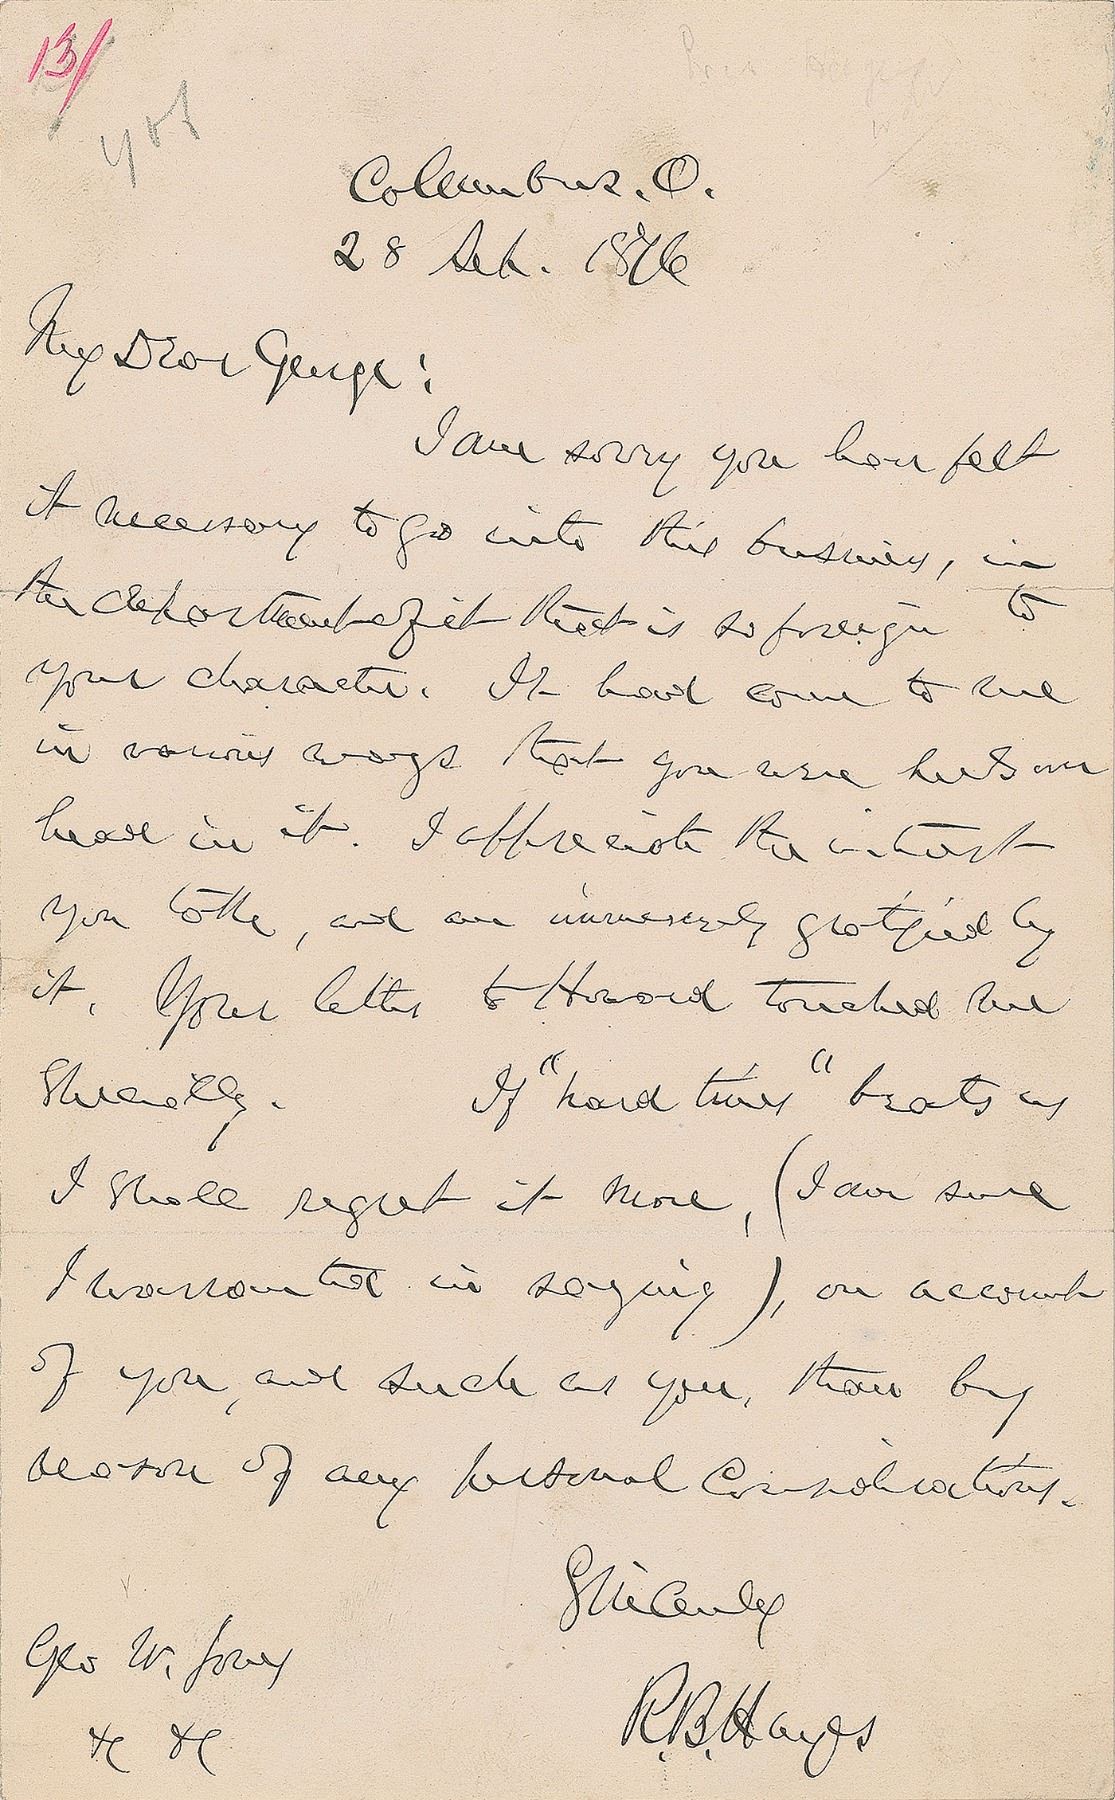 13/
Columbus. O.
28 Sep. 1876
My Dear George:
I am sorry you have felt
it necessary to go into this business, in
the department of it that is so foreign to
your character. It had come to me
in various ways that you were heels over
head in it. I appreciate the interest
you take, and am immensely gratified by
it. Your letter to Howard touched me
specially. If "hard times" beats us
I shall regret it more, (I am sure
I warranted in saying), on account
of you, and such as you, than by
reason of any personal considerations.
Sincerely
R.B. Hayes
Geo W. Jones
&c &c